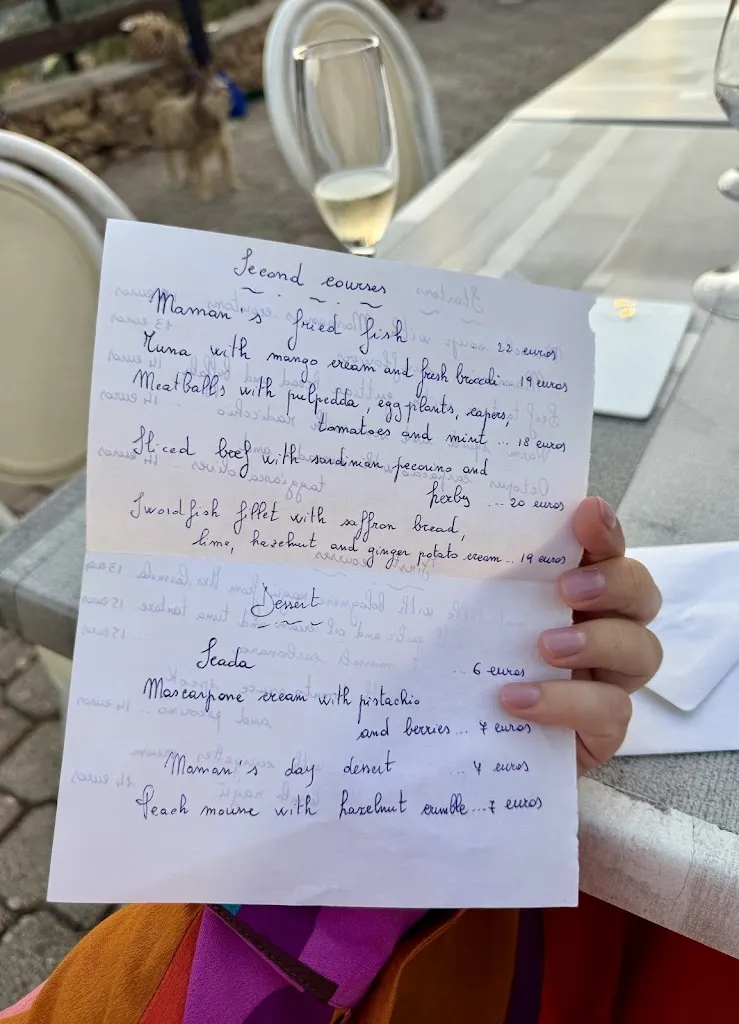 Second courses
Maman's fried fish 22 euros
Tuna with mango cream and fresh broccoli 19 euros
Meatballs with pulpedda, eggplants, capers,
tomatoes and mint ... 18 euros
Sliced beef with sardinian pecorino and
herbs ... 20 euros
Swordfish fillet with saffron bread,
lime, hazelnut and ginger potato cream... 19 euros
Dessert
Seada ... 6 euros
Mascarpone cream with pistachio
and berries... 7 euros
Maman's day desert ... 4 euros
Peach mousse with hazelnut crumble ...7 euros